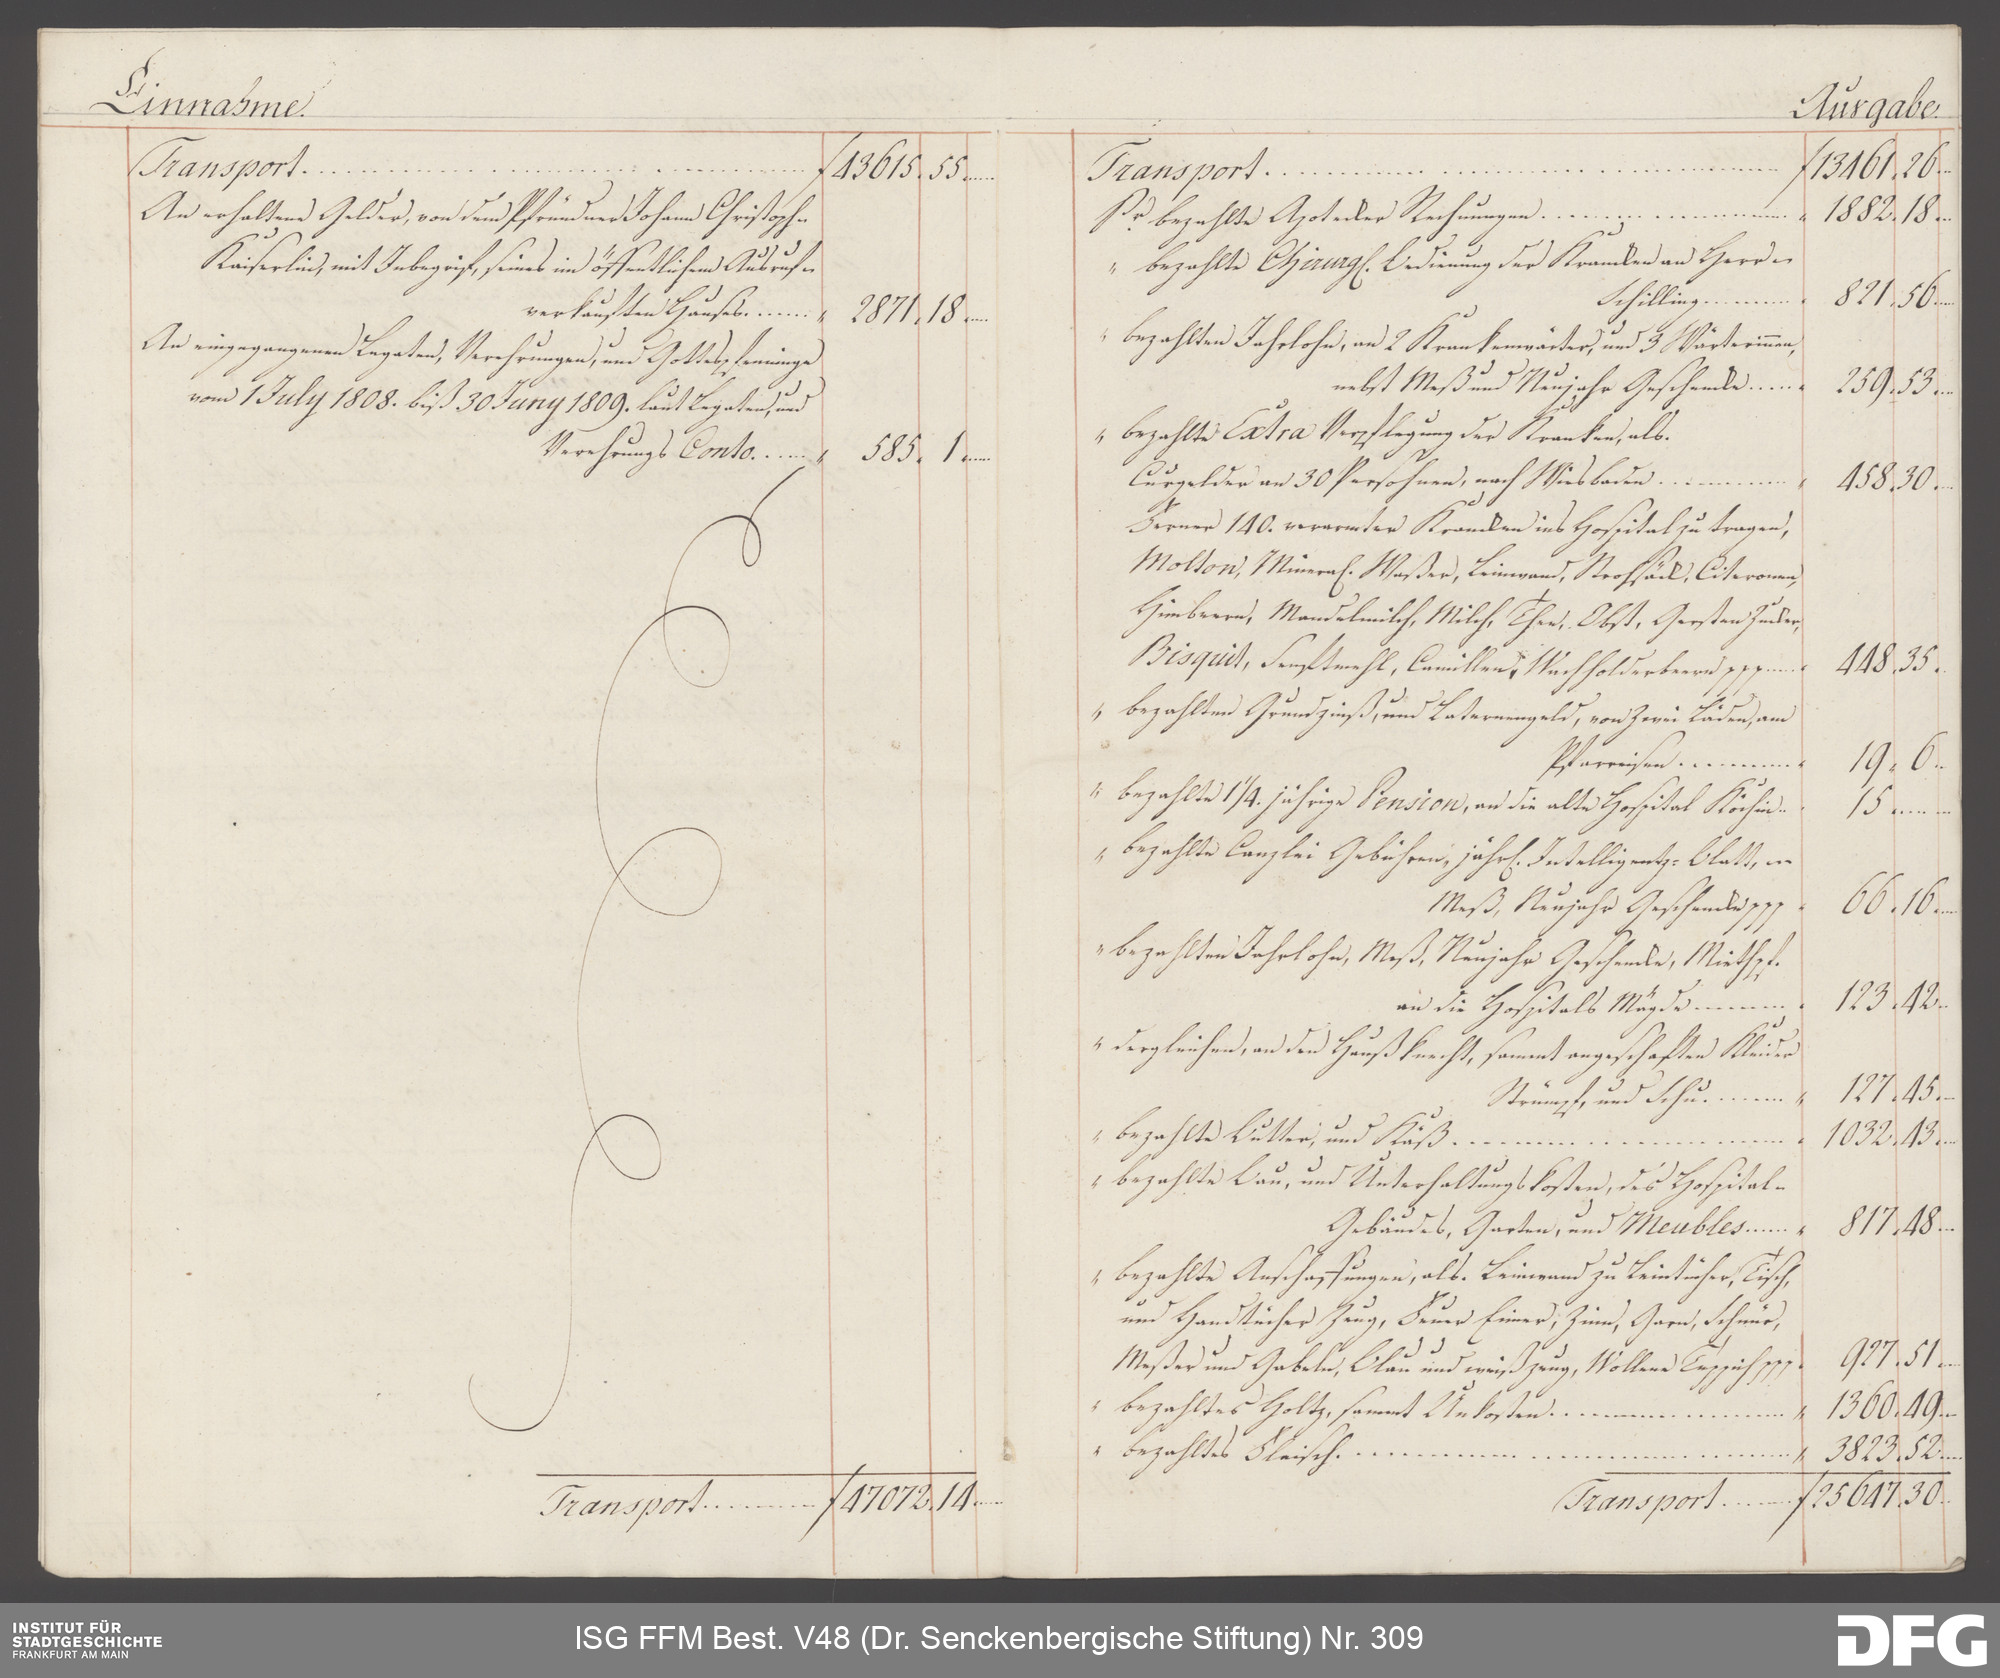 Einnahme.
Transport f 43615. 55.
An erhaltene Gelder, von dem Pfründner Johann Christoph-
Kaiserlin, mit Inbegrif, seines im öffentlichem Ausruf-
verkauften Hauses. " 2871. 18.
An eingegangenen Legaten, Verehrungen, und Gottespfeninge
vom 1 July 1808. biß 30 Juny 1809. laut Legaten, und
Verehrungs Conto. " 585. 1.
Transport f 47072. 14.
Ausgabe.
Transport f 13461. 26.
Pr bezahlte Apotecker Rechnungen " 1882. 18.
" bezahlte Chirurg. Bedienung der Krancken an Herr
Schilling " 821. 56.
" bezahlten Jahrlohn, an 2 Krankenwärter, und 3 Wärterinnen,
nebst Meß und Neujahr Geschencke " 259. 53.
" bezahlte Extra Verpflegung der Kranken, als.
Curgelder an 30 Persohnen, nach Wiesbaden " 458. 30.
Ferner 140. verarmter Krancken ins Hospital zu tragen,
Molton, Mineral. Waßer, Leinwand, Strohsäck, Citeronen,
Himbeern, Mandelmilch, Milch, Thee, Obst, Gersten Zucker,
Bisquit, Senftmehl, Camillen, Wachholderbeern ppp " 448. 35.
" bezahlten Grundzinß, und Laternengeld, von zwei Läden, am
Pfarreisen " 19. 6.
" bezahlte 1/4. jährige Pension, an die alte Hospital Köchin 15
" bezahlte Canzlei Gebühren, jährl. Intelligentz-Blatt,
Meß, Neujahr Geschencke ppp " 66. 16.
" bezahlten Jahrlohn, Meß, Neujahr Geschencke, Miethpf.
an die Hospitals Mägde " 123. 42.
" dergleichen, an den Haußknecht, sammt angeschaften Kleider
Strümpf, und Schu. " 127. 45.
" bezahlte Butter, und Käß " 1032. 43.
" bezahlte Bau, und Unterhaltungskosten, des Hospital-
Gebäudes, Garten, und Meubles " 817. 48.
" bezahlte Anschaffungen, als. Leinwand zu Leintücher, Tisch,
und Handtücher Zeug, Feuer Eimer, Zinn, Garn, Schnür,
Meßer und Gabeln, Blau und weiß zeug, Wollene Teppich ppp " 927. 51.
" bezahltes Holtz, sammt Unkosten " 1360. 49.
" bezahltes Fleisch. " 3823. 52.
Transport f 25647. 30.
INSTITUT FÜR
STADTGESCHICHTE
FRANKFURT AM MAIN
ISG FFM Best. V48 (Dr. Senckenbergische Stiftung) Nr. 309
DFG